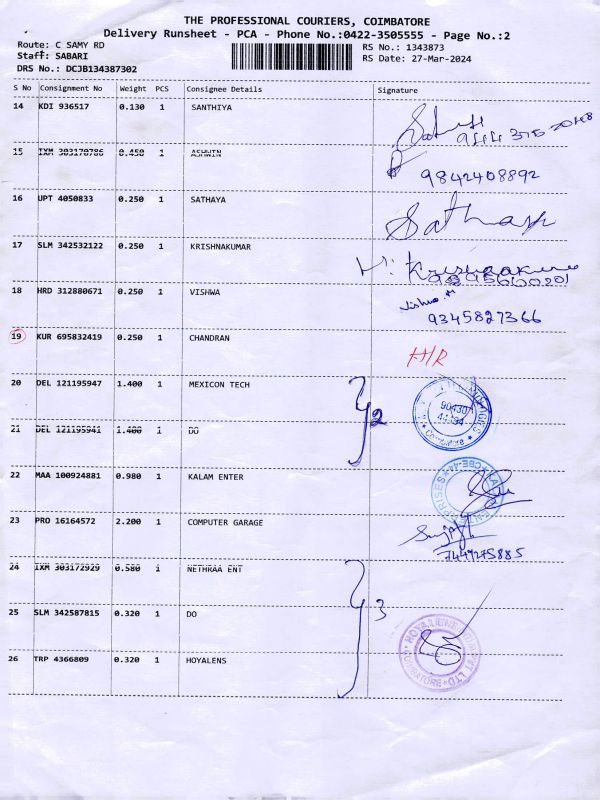 THE PROFESSIONAL COURIERS, COIMBATORE
Delivery Runsheet - PCA - Phone No.:0422-3505555 - Page No.:2
Route: C SAMY RD
Staff: SABARI
DRS No.: DCJB134387302
RS No.: 1343873
RS Date: 27-Mar-2024
S No Consignment No Weight PCS Consignee Details Signature
14 KDI 936517 0.130 1 SANTHIYA
15 IXM 303170786 0.450 1 ASHWIN
9842408892
16 UPT 4050833 0.250 1 SATHAYA
17 SLM 342532122 0.250 1 KRISHNAKUMAR
18 HRD 312880671 0.250 1 VISHWA Vishwa
9345827366
19 KUR 695832419 0.250 1 CHANDRAN
20 DEL 121195947 1.400 1 MEXICON TECH
2
Coimbatore
21 DEL 121195941 1.400 1 DO
22 MAA 100924881 0.980 1 KALAM ENTER
CBE-44
23 PRO 16164572 2.200 1 COMPUTER GARAGE
7449275885
24 IXM 303172929 0.580 1 NETHRAA ENT
25 SLM 342587815 0.320 1 DO 3
26 TRP 4366809 0.320 1 HOYALENS
COIMBATORE